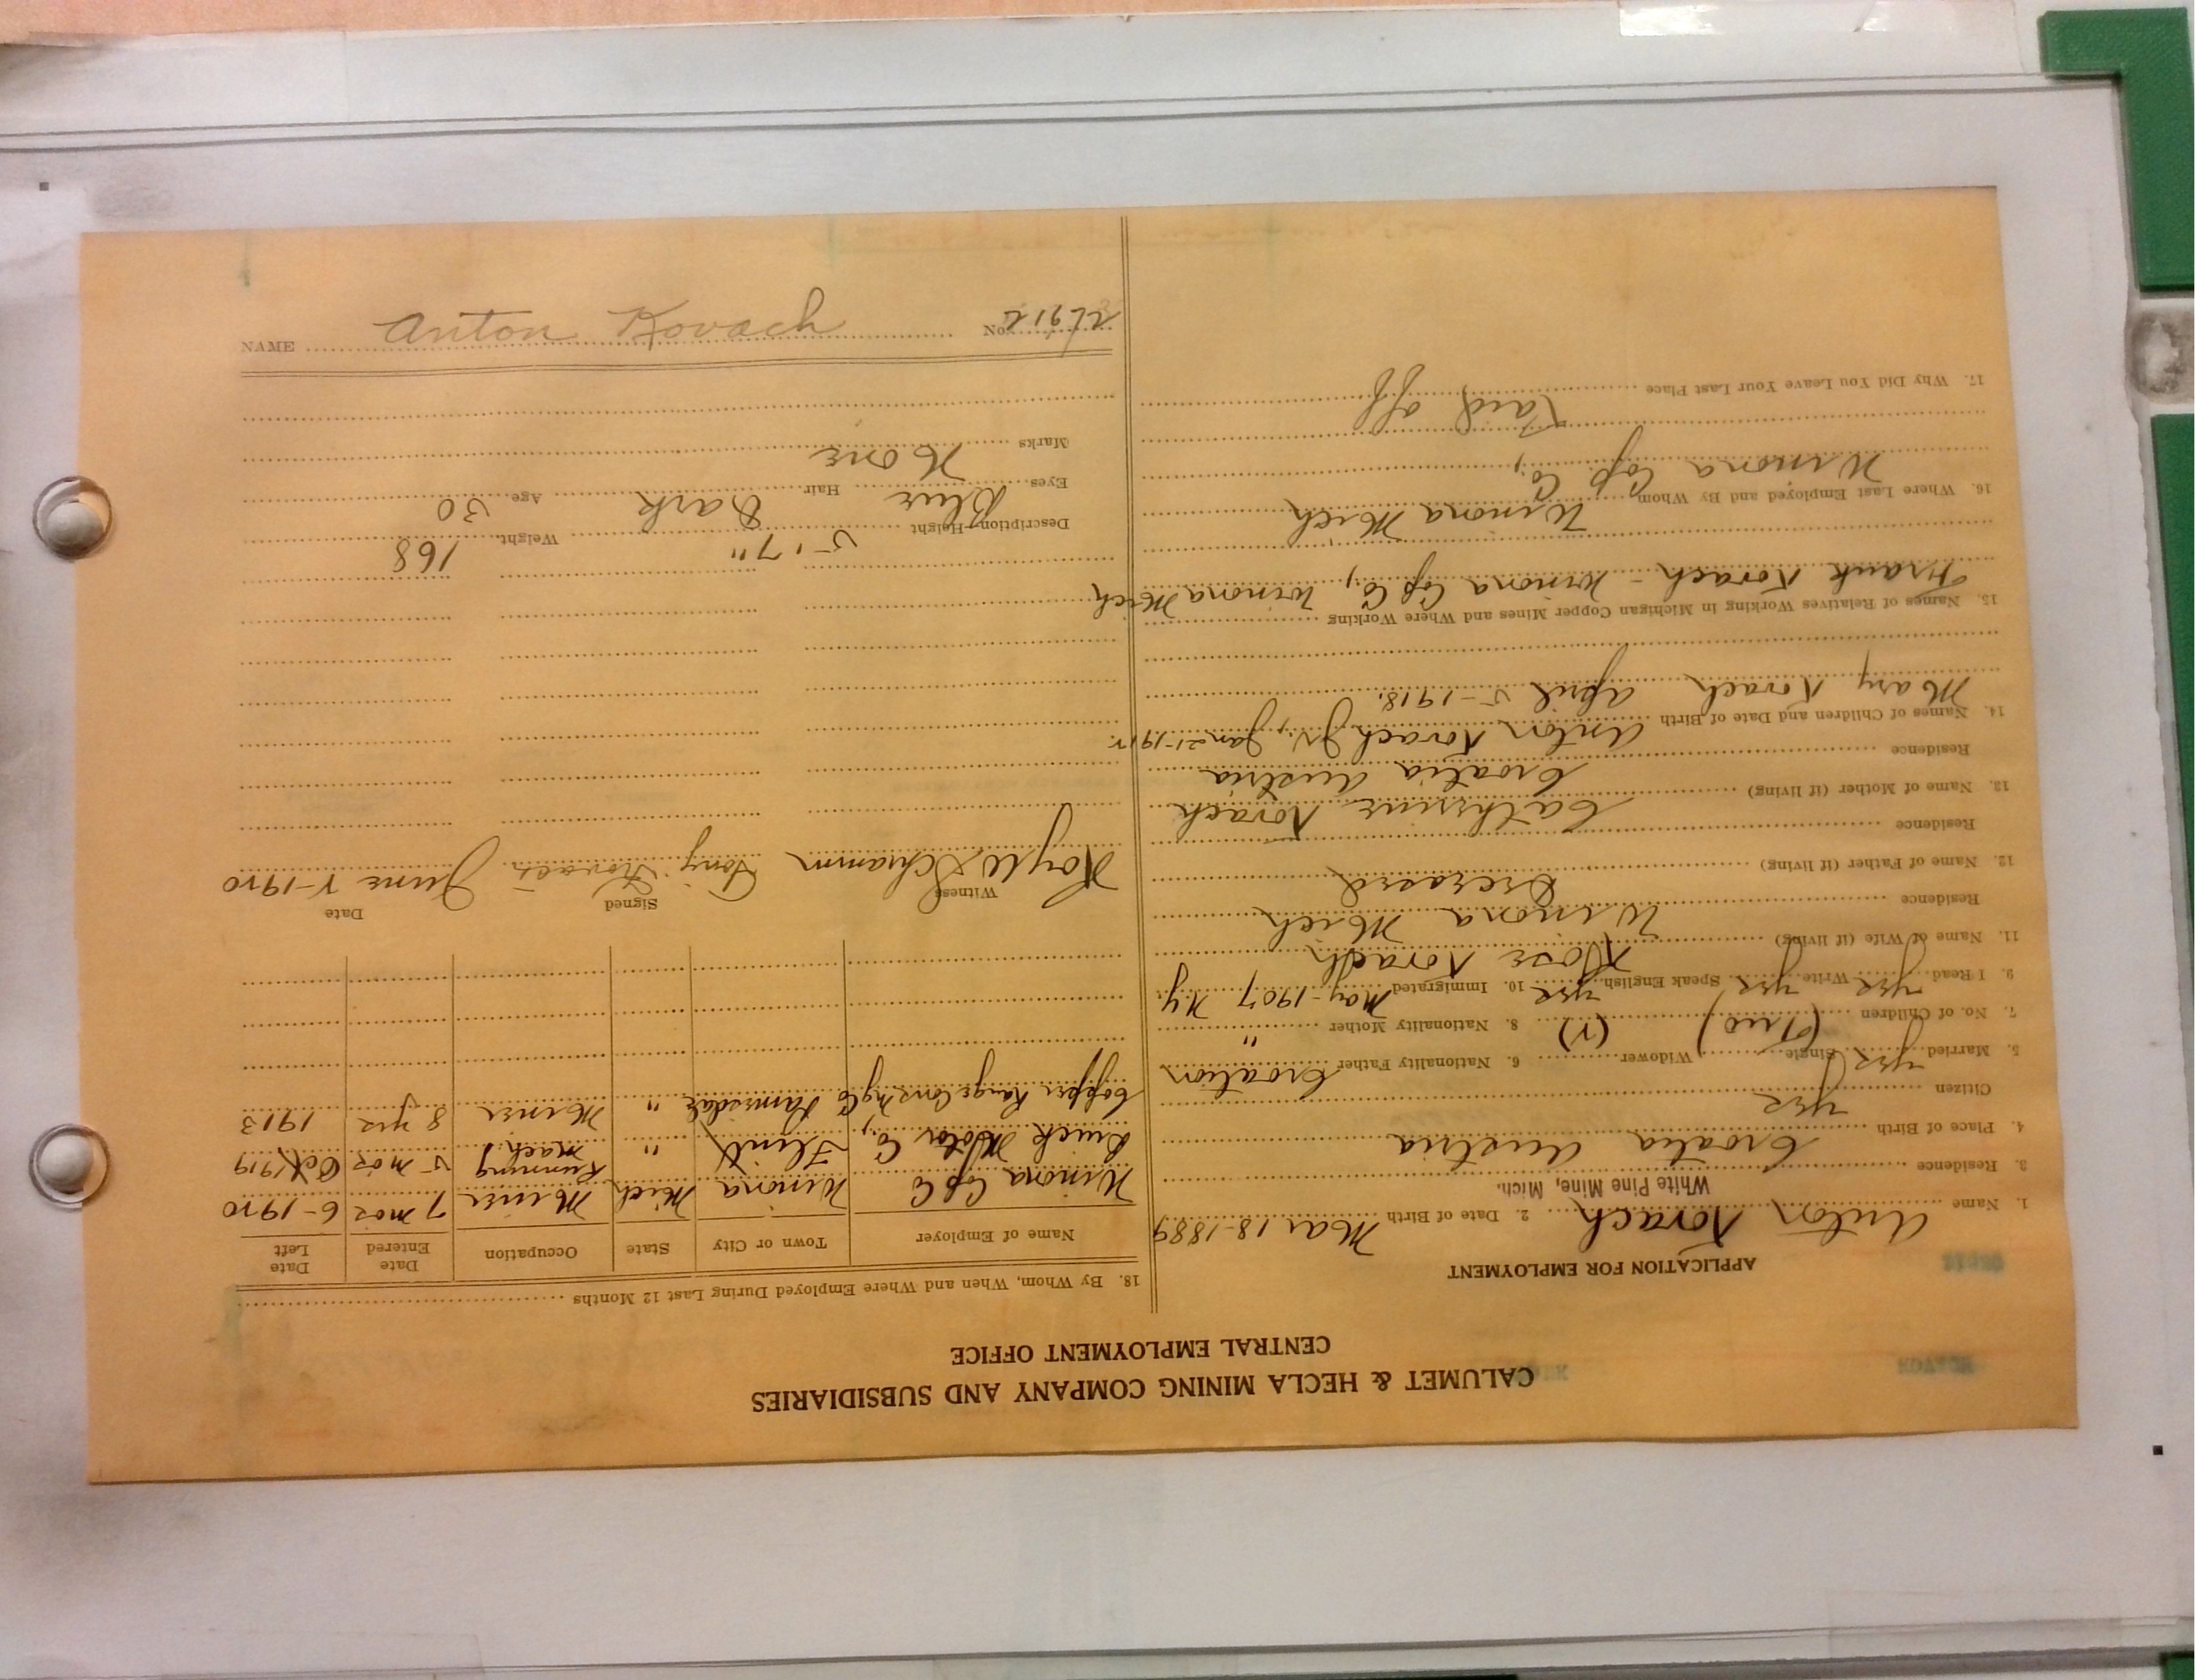 CALUMET & HECLA MINING COMPANY AND SUBSIDIARIES
CENTRAL EMPLOYMENT OFFICE
APPLICATION FOR EMPLOYMENT
1. Name Anton Kovach 2. Date of Birth Mar 18-1889
White Pine Mine, Mich.
3. Residence
4. Place of Birth Croatia Austria
Citizen yes
5. Married yes Single Widower 6. Nationality Father Croation
7. No. of Children (Two) (2) 8. Nationality Mother "
9. I Read yes Write yes Speak English yes 10. Immigrated May-1907 N.Y.
11. Name of Wife (if living) Rose Kovach
Residence Winona Mich
12. Name of Father (if living) Deceased
Residence
13. Name of Mother (if living) Catherine Kovach
Residence Croatia Austria
14. Names of Children and Date of Birth Anton Kovach Jr., Jan 21-191
Mary Kovach April 5-1918.
15. Names of Relatives Working in Michigan Copper Mines and Where Working
Frank Kovach - Winona Cop Co., Winona Mich
16. Where Last Employed and By Whom Winona Mich
Winona Cop Co.,
17. Why Did You Leave Your Last Place Laid off
18. By Whom, When and Where Employed During Last 12 Months
Name of Employer Town or City State Occupation Date Entered Date Left
Winona Cop Co Winona Mich Miner 7 mos 6-1920
Buick Motor Co., Flint " Running Mach. 5 mos Oct 1919
Copper Range Cons Mg Co Painesdale " Miner 8 yrs 1913
Witness Signed Date
Hoyle Schramm Tony Kovach June 2-1920
Description-Height 5' 7" Weight 168
Eyes Blue Hair Dark Age 30
Marks None
NAME Anton Kovach No.